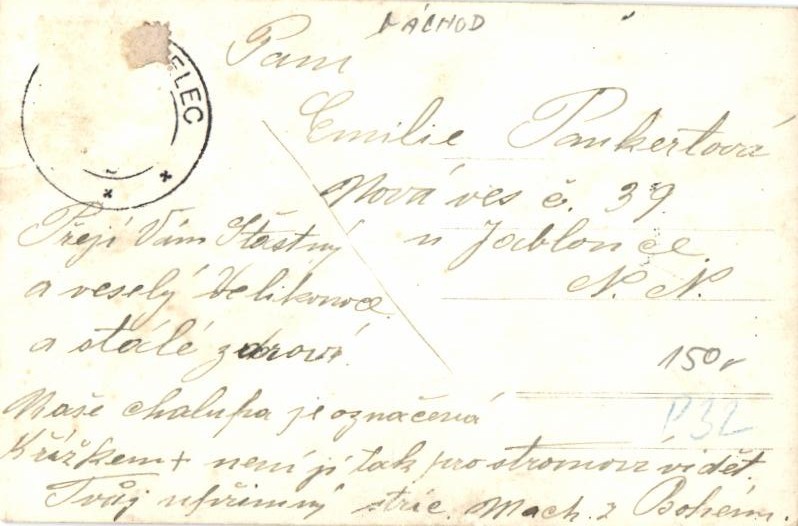 NÁCHOD
ELEC
Paní
Emilie Pankertová
Nová ves č. 39
u Jablonce
N. N.
Přeji Vám šťastný
a veselý Velikonoce
a stálé zdroví.
150
P32
Naše chalupa je označená
Křížkem + není jí tak pro stromoví vidět.
Tvůj upřimný stric. Mach. z Bohém.